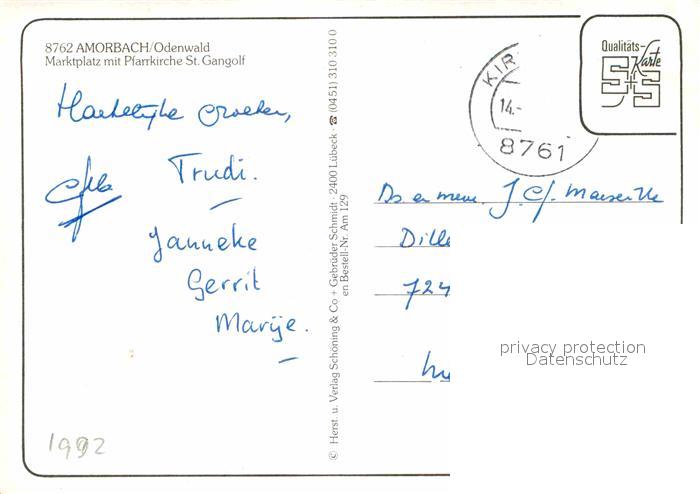 8762 AMORBACH/Odenwald
Marktplatz mit Pfarrkirche St. Gangolf
Hartelijke groeten,
Trudi.
Janneke
Gerrit
Marije.
1992
© Herst. u. Verlag Schöning & Co + Gebrüder Schmidt · 2400 Lübeck · ☎ (0451) 310 310 0
en Bestell-Nr. Am 129
Qualitäts-
Karte
S+S
KIR
14.-
8761
Ds en mevr. J.
Dille
724
privacy protection
Datenschutz